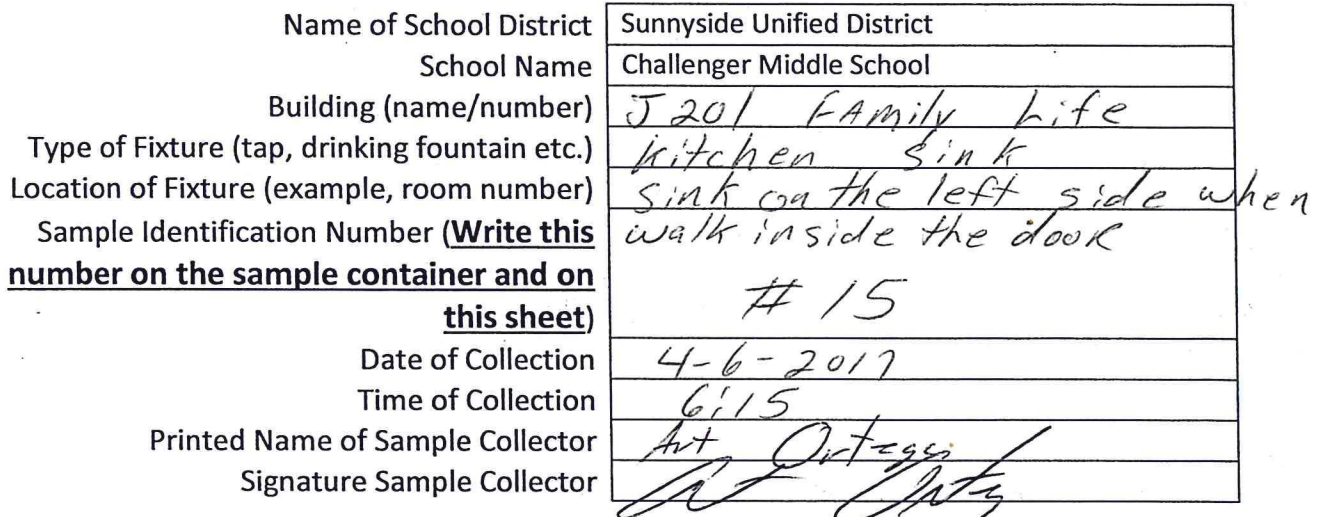 Name of School District Sunnyside Unified District
School Name Challenger Middle School
Building (name/number) J201 FAmily Life
Type of Fixture (tap, drinking fountain etc.) Kitchen Sink
Location of Fixture (example, room number) Sink on the left side when
Sample Identification Number (Write this walk inside the dooR
number on the sample container and on
this sheet) # 15
Date of Collection 4-6-2017
Time of Collection 6:15
Printed Name of Sample Collector Art
Signature Sample Collector